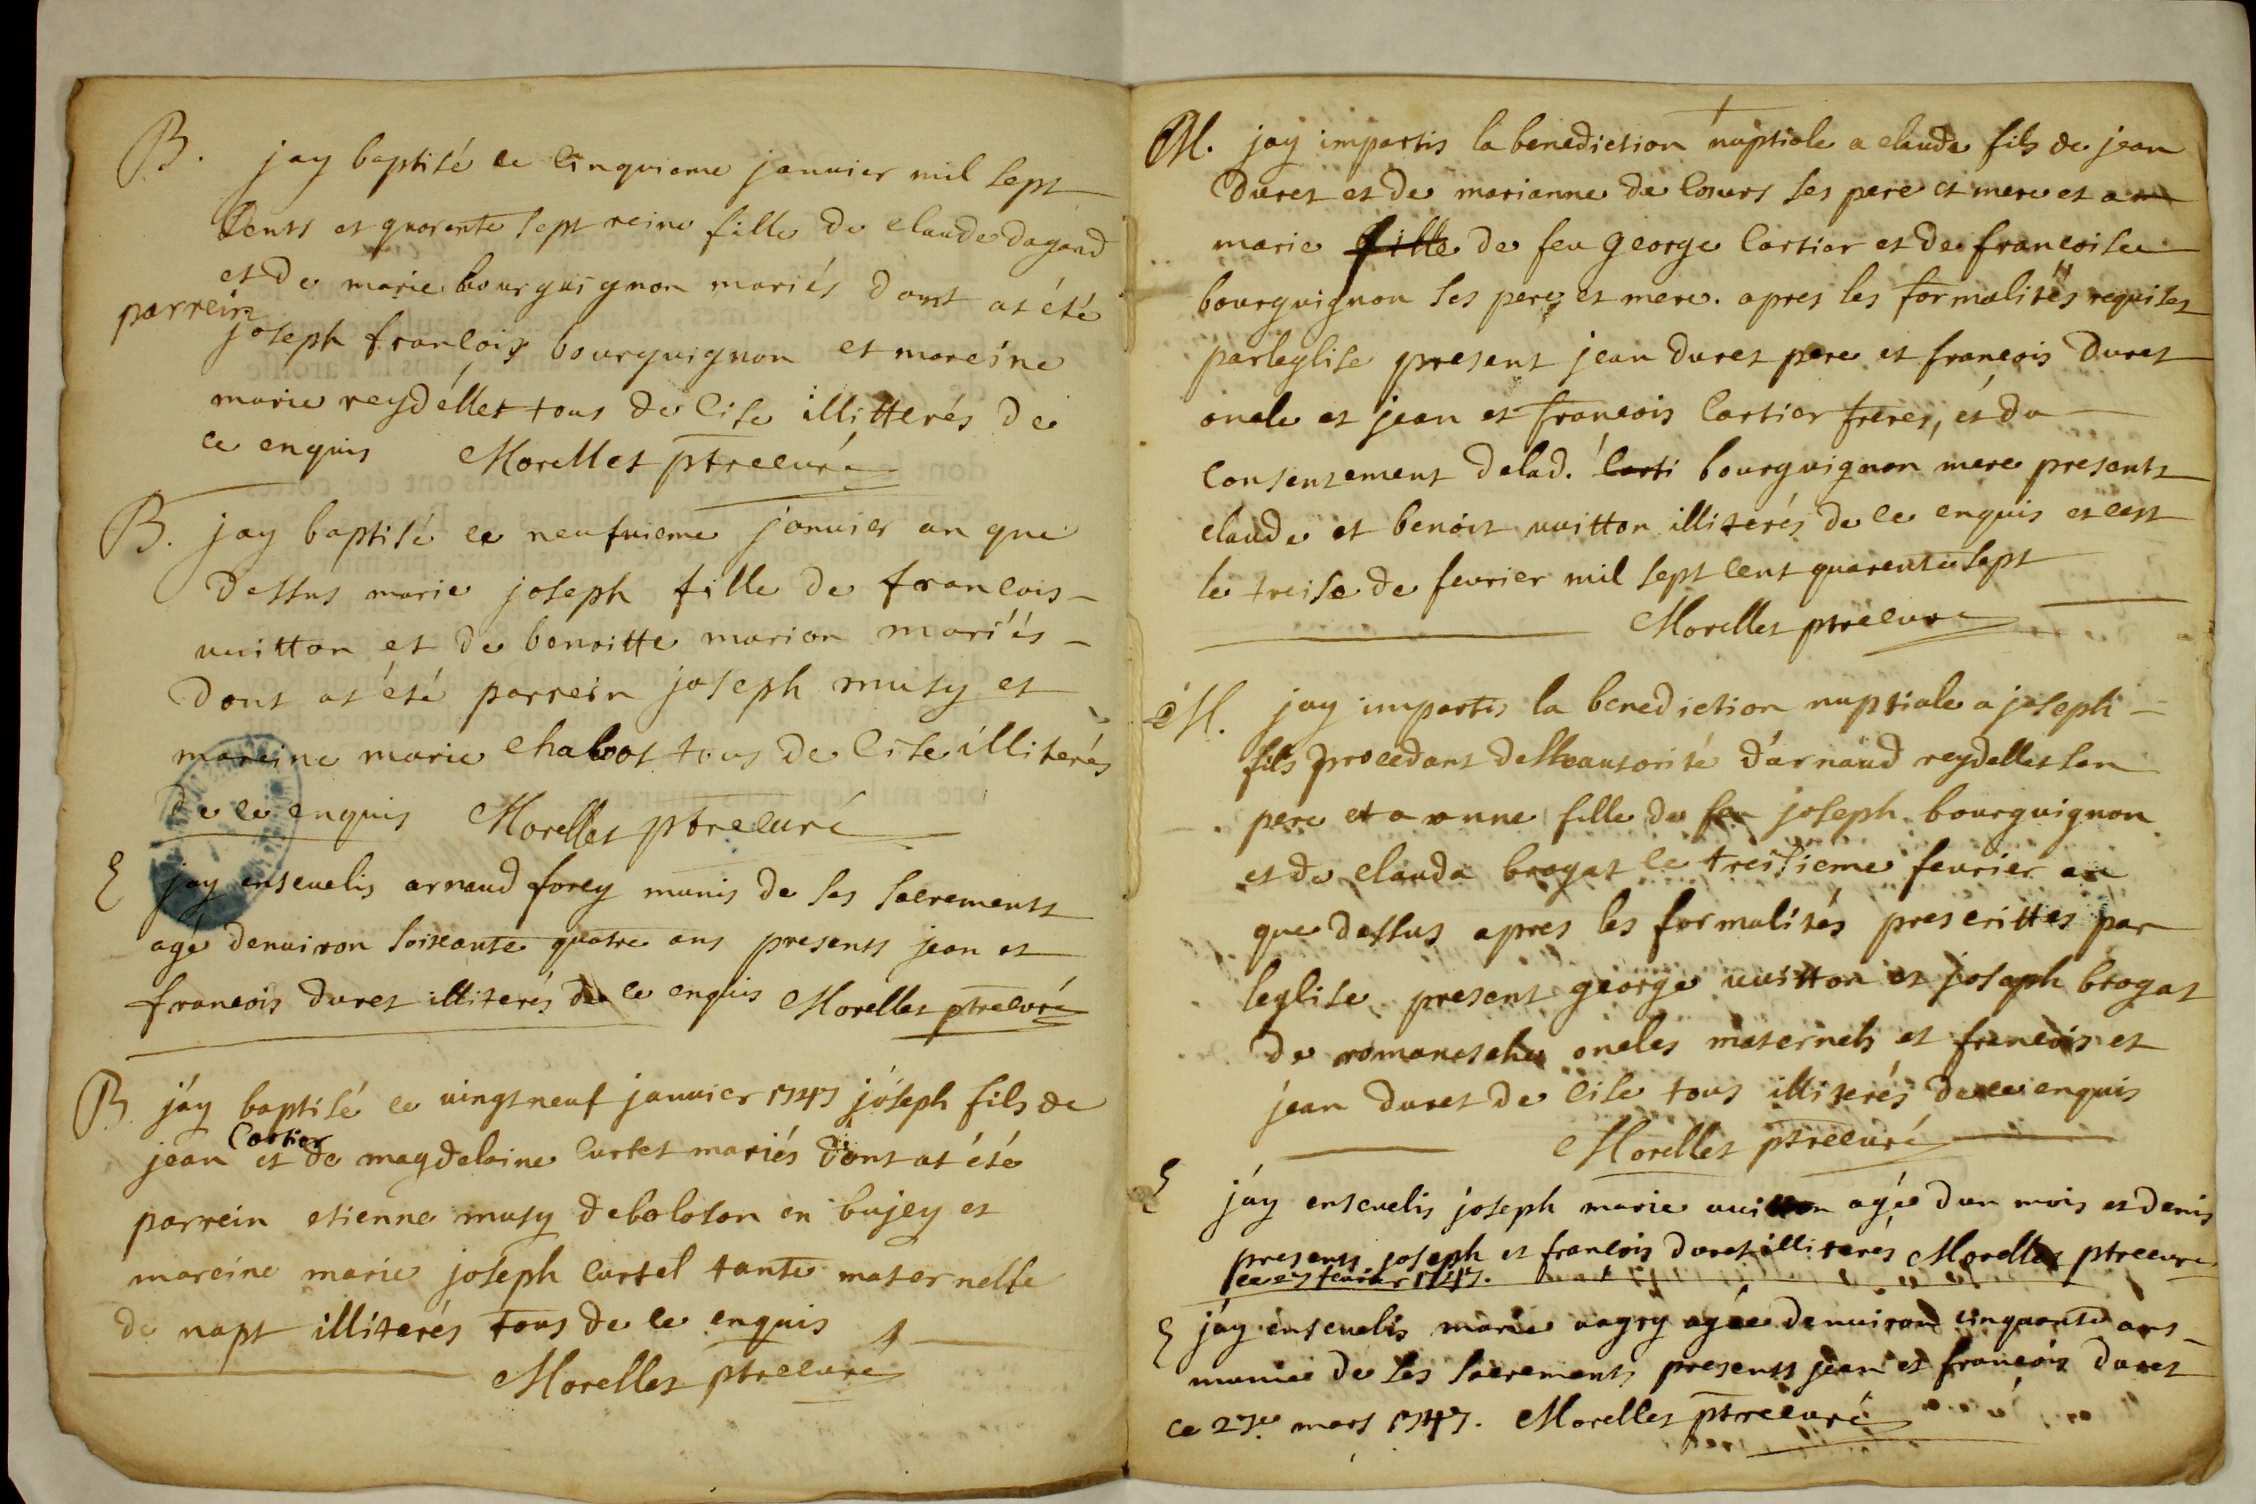 B. jay baptisé ce cinquieme januier mil sept
cents et quarente sept reine fille de claude dagand
et de marie bourguignon mariés dont at été
parrein
joseph francois bourguignon et mareine
marie reydellet tous de cise illitterés de
ce enquis Morellet ptrecuré
B. jay baptisé ce neufuieme januier an que
dessus marie joseph fille de francois
uuitton et de benoitte marion mariés
dont at été parrein joseph musy et
mareine marie chabot tous de cise illiterés
de ce enquis Morellet ptrecuré
E jay enseuelis arnaud forey munis de ses sacrements
agé denuiron soixante quatre ans presents jean et
francois duret illiterés de ce enquis Morellet ptrecuré
B jáy baptisé ce uingt neuf januier 1747 jóseph fils de
cartier
jean et de magdelaine curtet mariés dont at été
parrein etienne musy de boloson en bujey et
mareine marie joseph curtet tante maternelle
de napt illiterés tous de ce enquis
Morellet ptrecuré
M. jay impartis la benediction nuptiale a claude fils de jean
duret et de marianne de cours ses pere et mere et a
marie fille de feu george cartier et de francoise
bourguignon ses pere et mere. apres les formalités requises
par leglise present jean duret pere et francois duret
oncle et jean et francois cartier freres, et du
consentement de lad. carti bourguignon mere presents
claude et benoit uuitton illiterés de ce enquis et cest
le treise de feurier mil sept cent quarente sept
Morellet ptrecuré
M. jay impartis la benediction nuptiale a joseph
fils procedant de lautorité dárnaud reydellet son
pere et a anne fille de feu joseph bourguignon
et de clauda brogat ce treisieme feurier an
que dessus apres les formalités prescrittes par
leglise present george uuitton et joseph brogat
de romanesche oncles maternels et francois et
jean duret de cise tous illiterés de ce enquis
Morellet ptrecuré
E jáy enseuelis joseph marie uuitton agée dun mois et demis
presents joseph et francois duret illiterés Morellet ptrecuré
feurier 1747.
E jáy enseuelis marie uagry agée denuiron cinquante ans
munie de ses sacrements presents jean et francois duret
ce 27e. mars 1747. Morellet ptrecuré